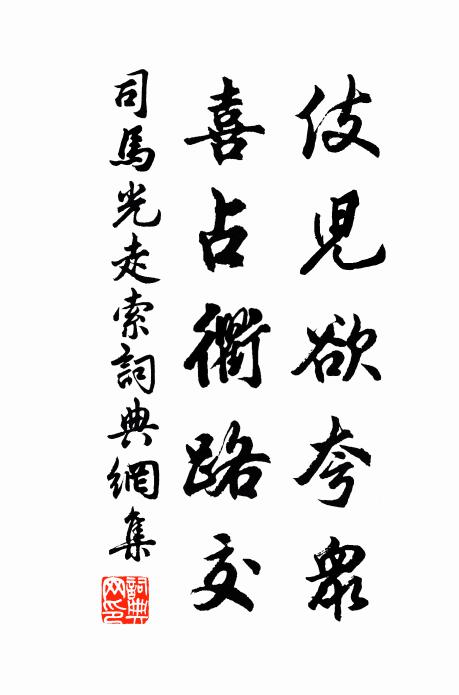 伎児欲夸衆
喜占衢路交
司馬光走索詞典網集
詞典网印